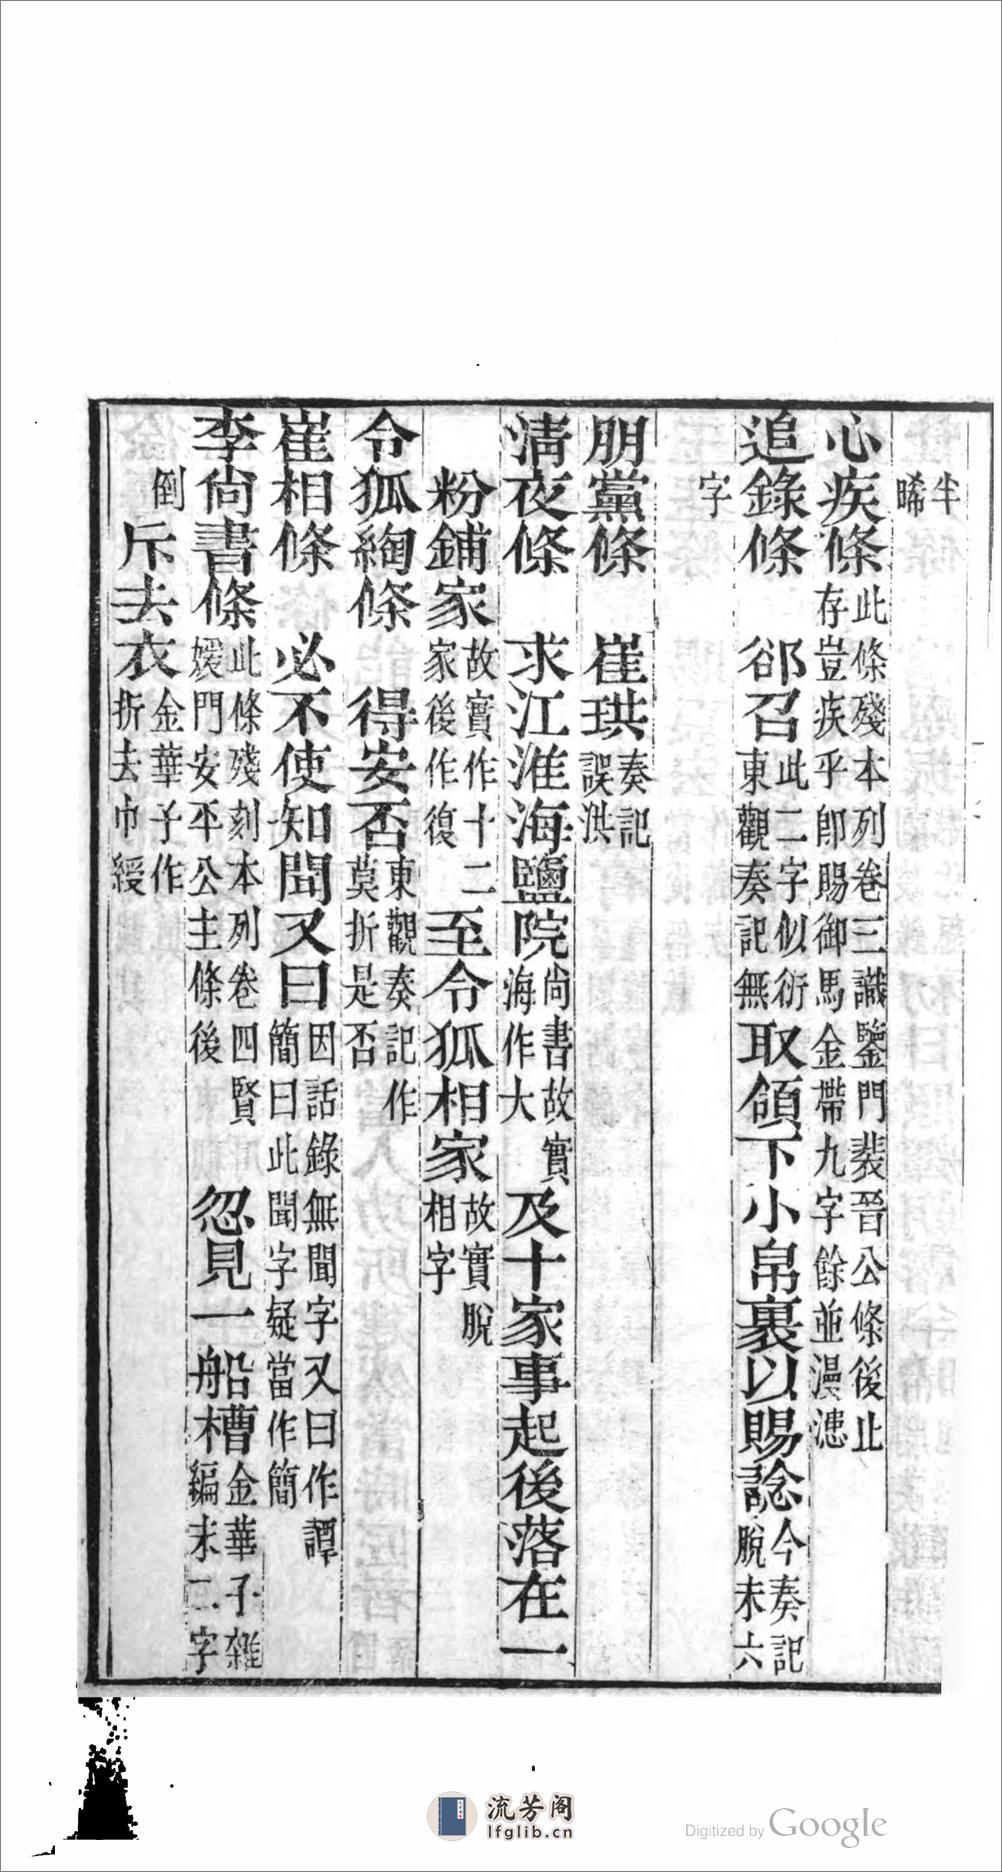 半
晞
心疾條此條殘本列卷三識鑒門裴晉公條後止
存豈疾乎卽賜御馬金帶九字餘並漫漶
追錄條 郤召此二字似衍
東觀奏記無取領下小帛裏以賜諗今奏記
脫末六
字
朋黨條 崔珙奏記
誤洪
清夜條 求江淮海鹽院尚書故實
海作大及十家事起後落在一
粉鋪家故實作十二
家後作復至令狐相家故實脫
相字
令狐綯條 得安否東觀奏記作
莫折是否
崔相條 必不使知聞又曰因話錄無聞字又曰作譚
簡曰此聞字疑當作簡
李尙書條此條殘刻本列卷四賢
媛門安平公主條後忽見一船槽金華子雜
編末二字
倒斥去衣金華子作
折去巾綬
流芳阁
lfglib.cn
Digitized by Google